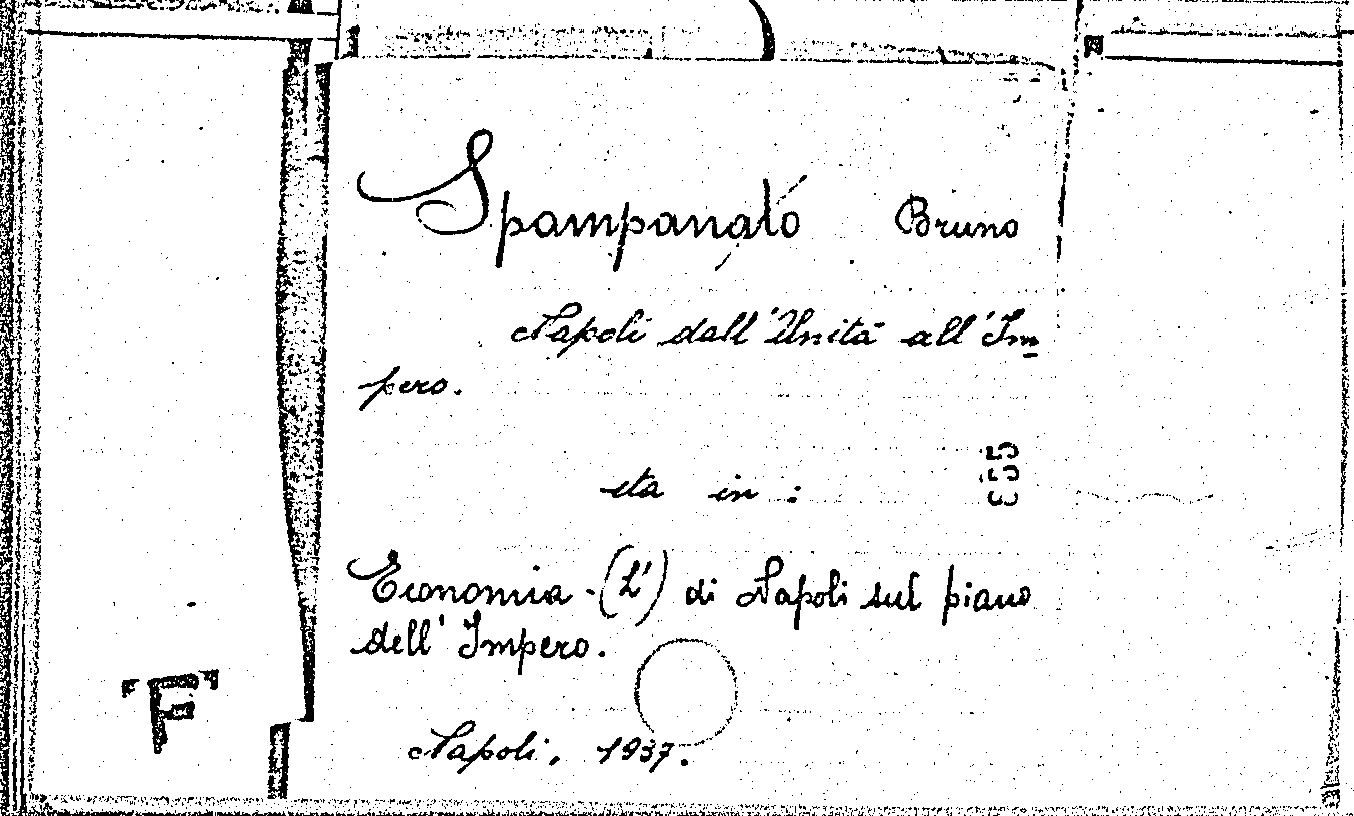 Spampanato Bruno
Napoli dall'Unità all'Im-
pero.
sta in :
655
Economia - (L') di Napoli sul piano
dell' Impero.
"F"
Napoli, 1937.